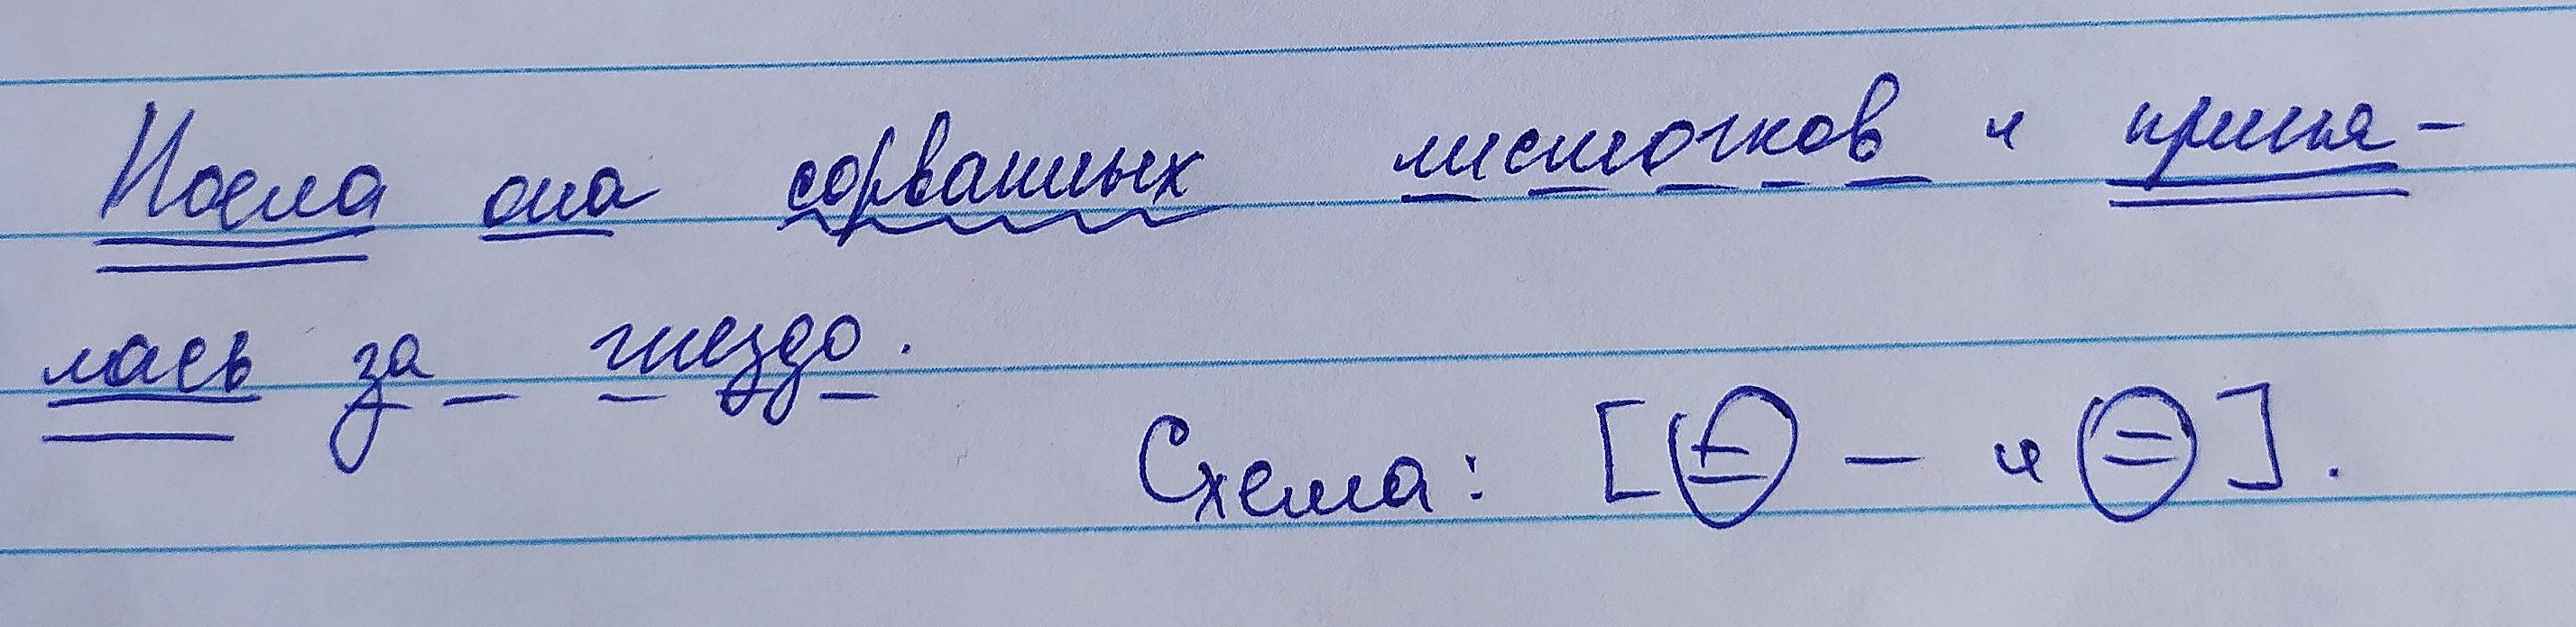 Поела она сорванных листочков и приня-
лась за гнездо.
Схема: [= – и =].